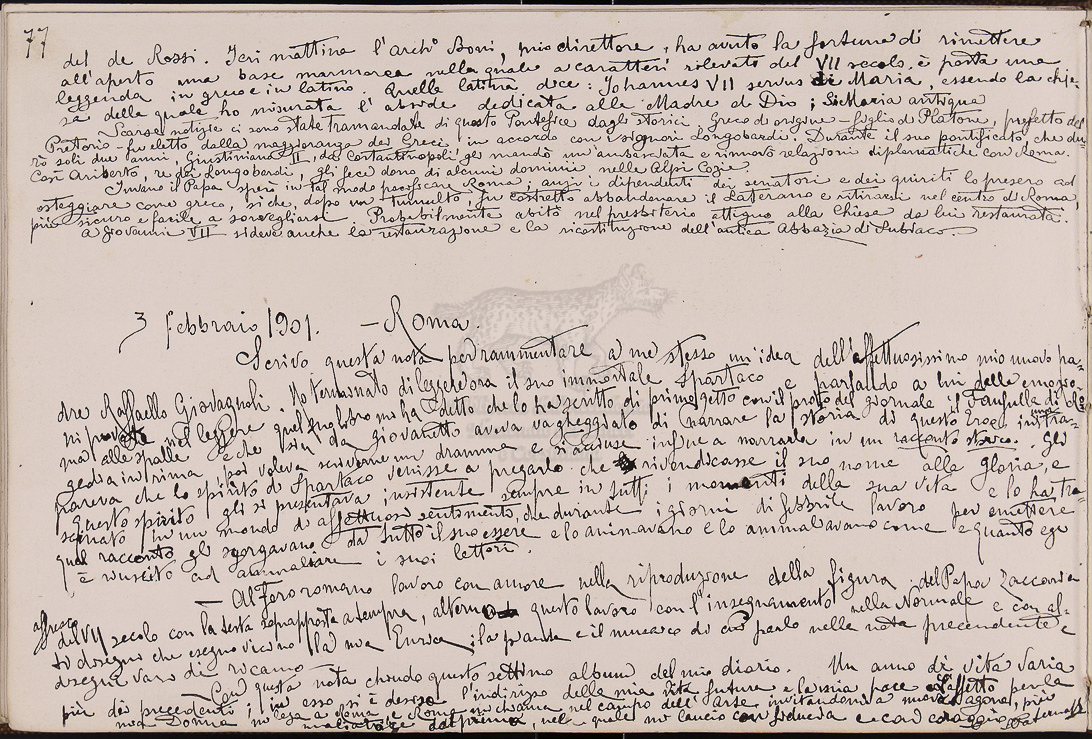 77
del de Rossi. Ieri mattina l'archo Boni, mio direttore, ha avuto la fortuna di rimettere
all'aperto una base marmorea nella quale a caratteri rilevati del VII secolo, è posta una
leggenda in greco e in latino. Quella latina dice: Johannes VII servus di Maria, essendo la chie-
sa della quale ho misurata l'abside dedicata alla Madre di Dio; S. Maria antiqua
Scarse notizie ci sono state tramandate di questo Pontefice dagli storici. Greco di origine - figlio di Platone, prefetto del
Pretorio - fu eletto dalla maggioranza dei Greci, in accordo con i signori Longobardi. Durante il suo pontificato che du-
rò soli due anni, Giustiniano II, da Costantinopoli, gli mandò un'ambasciata e rinnovò relazioni diplomatiche con Roma.
Così Ariberto, re dei Longobardi, gli fece dono di alcuni dominii nelle Alpi Cozie.
Invano il Papa sperò in tal modo pacificare Roma; anzi i dipendenti dei senatori e dei quiriti lo presero ad
osteggiare come greco, sì che, dopo un tumulto, fu costretto abbandonare il Laterano e ritirarsi nel centro di Roma,
più sicuro e facile a sorvegliarsi. Probabilmente abitò nel presbiterio attiguo alla Chiesa da lui restaurata.
A Giovanni VII si deve anche la restaurazione e la ricostituzione dell'antica Abbazia di Subiaco.
3 febbraio 1901. - Roma.
Scrivo questa nota per rammentare a me stesso un'idea dell'affettuosissimo mio nuovo pa-
dre Raffaello Giovagnoli. Ho terminato di leggere ora il suo immortale Spartaco e parlando a lui delle emozio-
ni provate nel leggere quel suo libro mi ha detto che lo ha scritto di primo getto con il proto del giornale il Fanfulla di Ro-
ma alle spalle e che sin da giovanetto aveva vagheggiato di narrare la storia di questo Eroe in una tra-
gedia in prima, poi voleva scriverne un dramma e si accinse infine a narrarla in un racconto storico. Gli
pareva che lo spirito di Spartaco venisse a pregarlo che rivendicasse il suo nome alla gloria, e
questo spirito gli si presentava insistente sempre in tutti i momenti della sua vita e lo ha tra-
scinato in un mondo di affettuoso sentimento, che durante i giorni di febbrile lavoro per emettere
quel racconto gli sgorgavano da tutto il suo essere e lo animavano e lo ammaliavano come e quanto egli
è riuscito ad ammaliare i suoi lettori.
- Al Foro romano lavoro con amore nella riproduzione della figura del Papa Zaccaria
affresco
del VII secolo con la testa sovrapposta a tempra, alterno questo lavoro con l'insegnamento nella Normale e con al-
ti disegni che eseguo vicino la mia Enrica; la pianta e il musaico di cui parlo nelle nota precedente e
disegni vari di ricamo.
Con questa nota chiudo questo settimo album del mio diario. Un anno di vita varia
più dei precedenti; in esso si è deciso l'indirizzo della mia vita futura e la mia pace coll'affetto per la
mia Donna mi lega a Roma, e Roma mi chiama, nel campo dell'Arte, invitandomi a nuovo agone, più
dapprima, nel quale mi lancio con fiducia e con coraggio